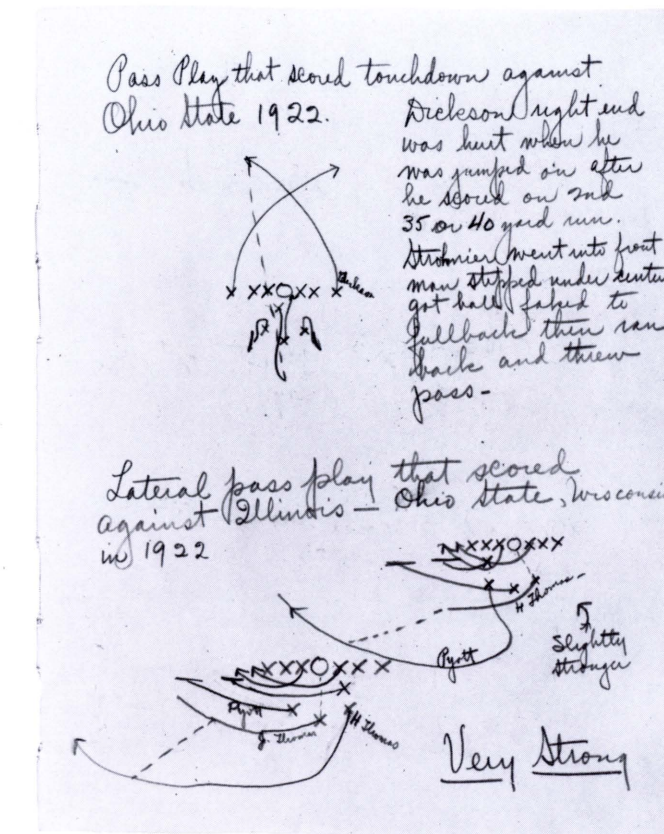 Pass Play that scored touchdown against
Ohio State 1922.
Dickson right end
was hurt when he
was jumped on after
he scored on 2nd
35 or 40 yard run.
Strohmier went into front
man stepped under center
got ball faked to
fullback then ran
back and threw
pass-
Lateral pass play that scored
against Illinois — Ohio State, Wisconsin
in 1922
H Thomas
Pyott
Slightly
stronger
Pyott
J. Thomas
H Thomas
Very Strong